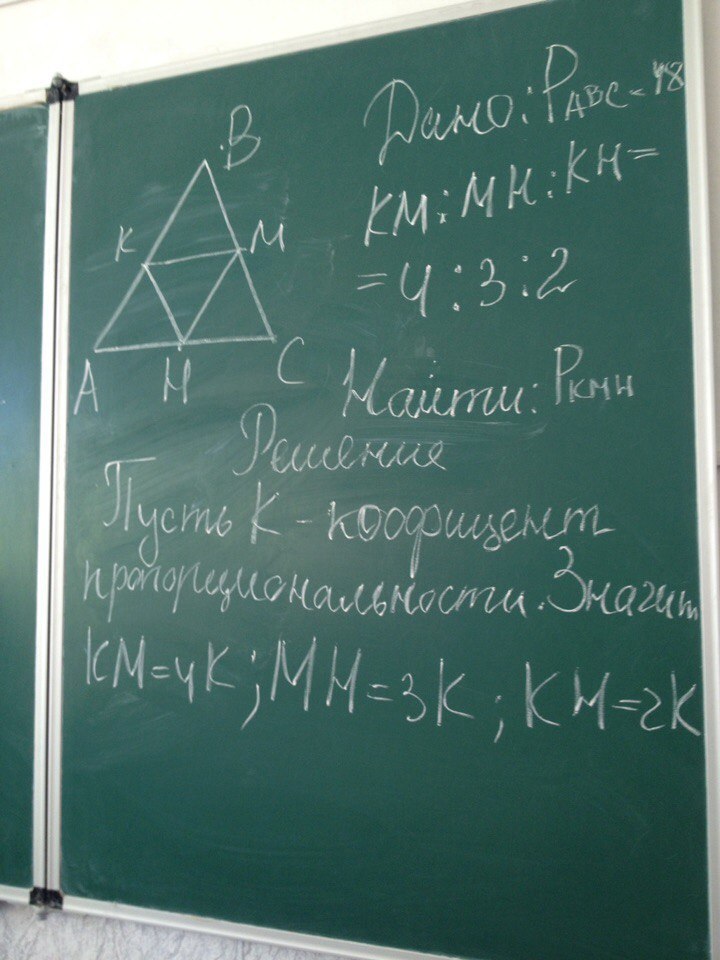 B
K
M
A
H
C
Дано: PABC = 48
KM:MH:KH=
=4:3:2
Найти: PKMH
Решение
Пусть K - коофицент
пропорциональности. Значит
KM=4K; MH=3K; KH=2K